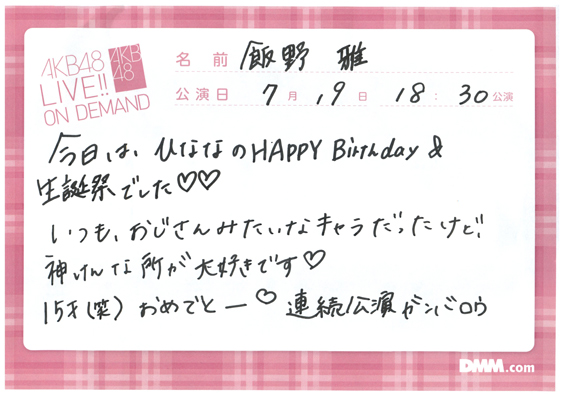 AKB48
LIVE!!
ON DEMAND
AKB
48
名前 飯野 雅
公演日 7月19日 18:30公演
今日は、ひななのHAPPY Birthday &
生誕祭でした♡♡
いつも、おじさんみたいなキャラだったけど、
神けんな所が大好きです♡
15才(笑) おめでとー♡ 連続公演ガンバロウ
DMM.com